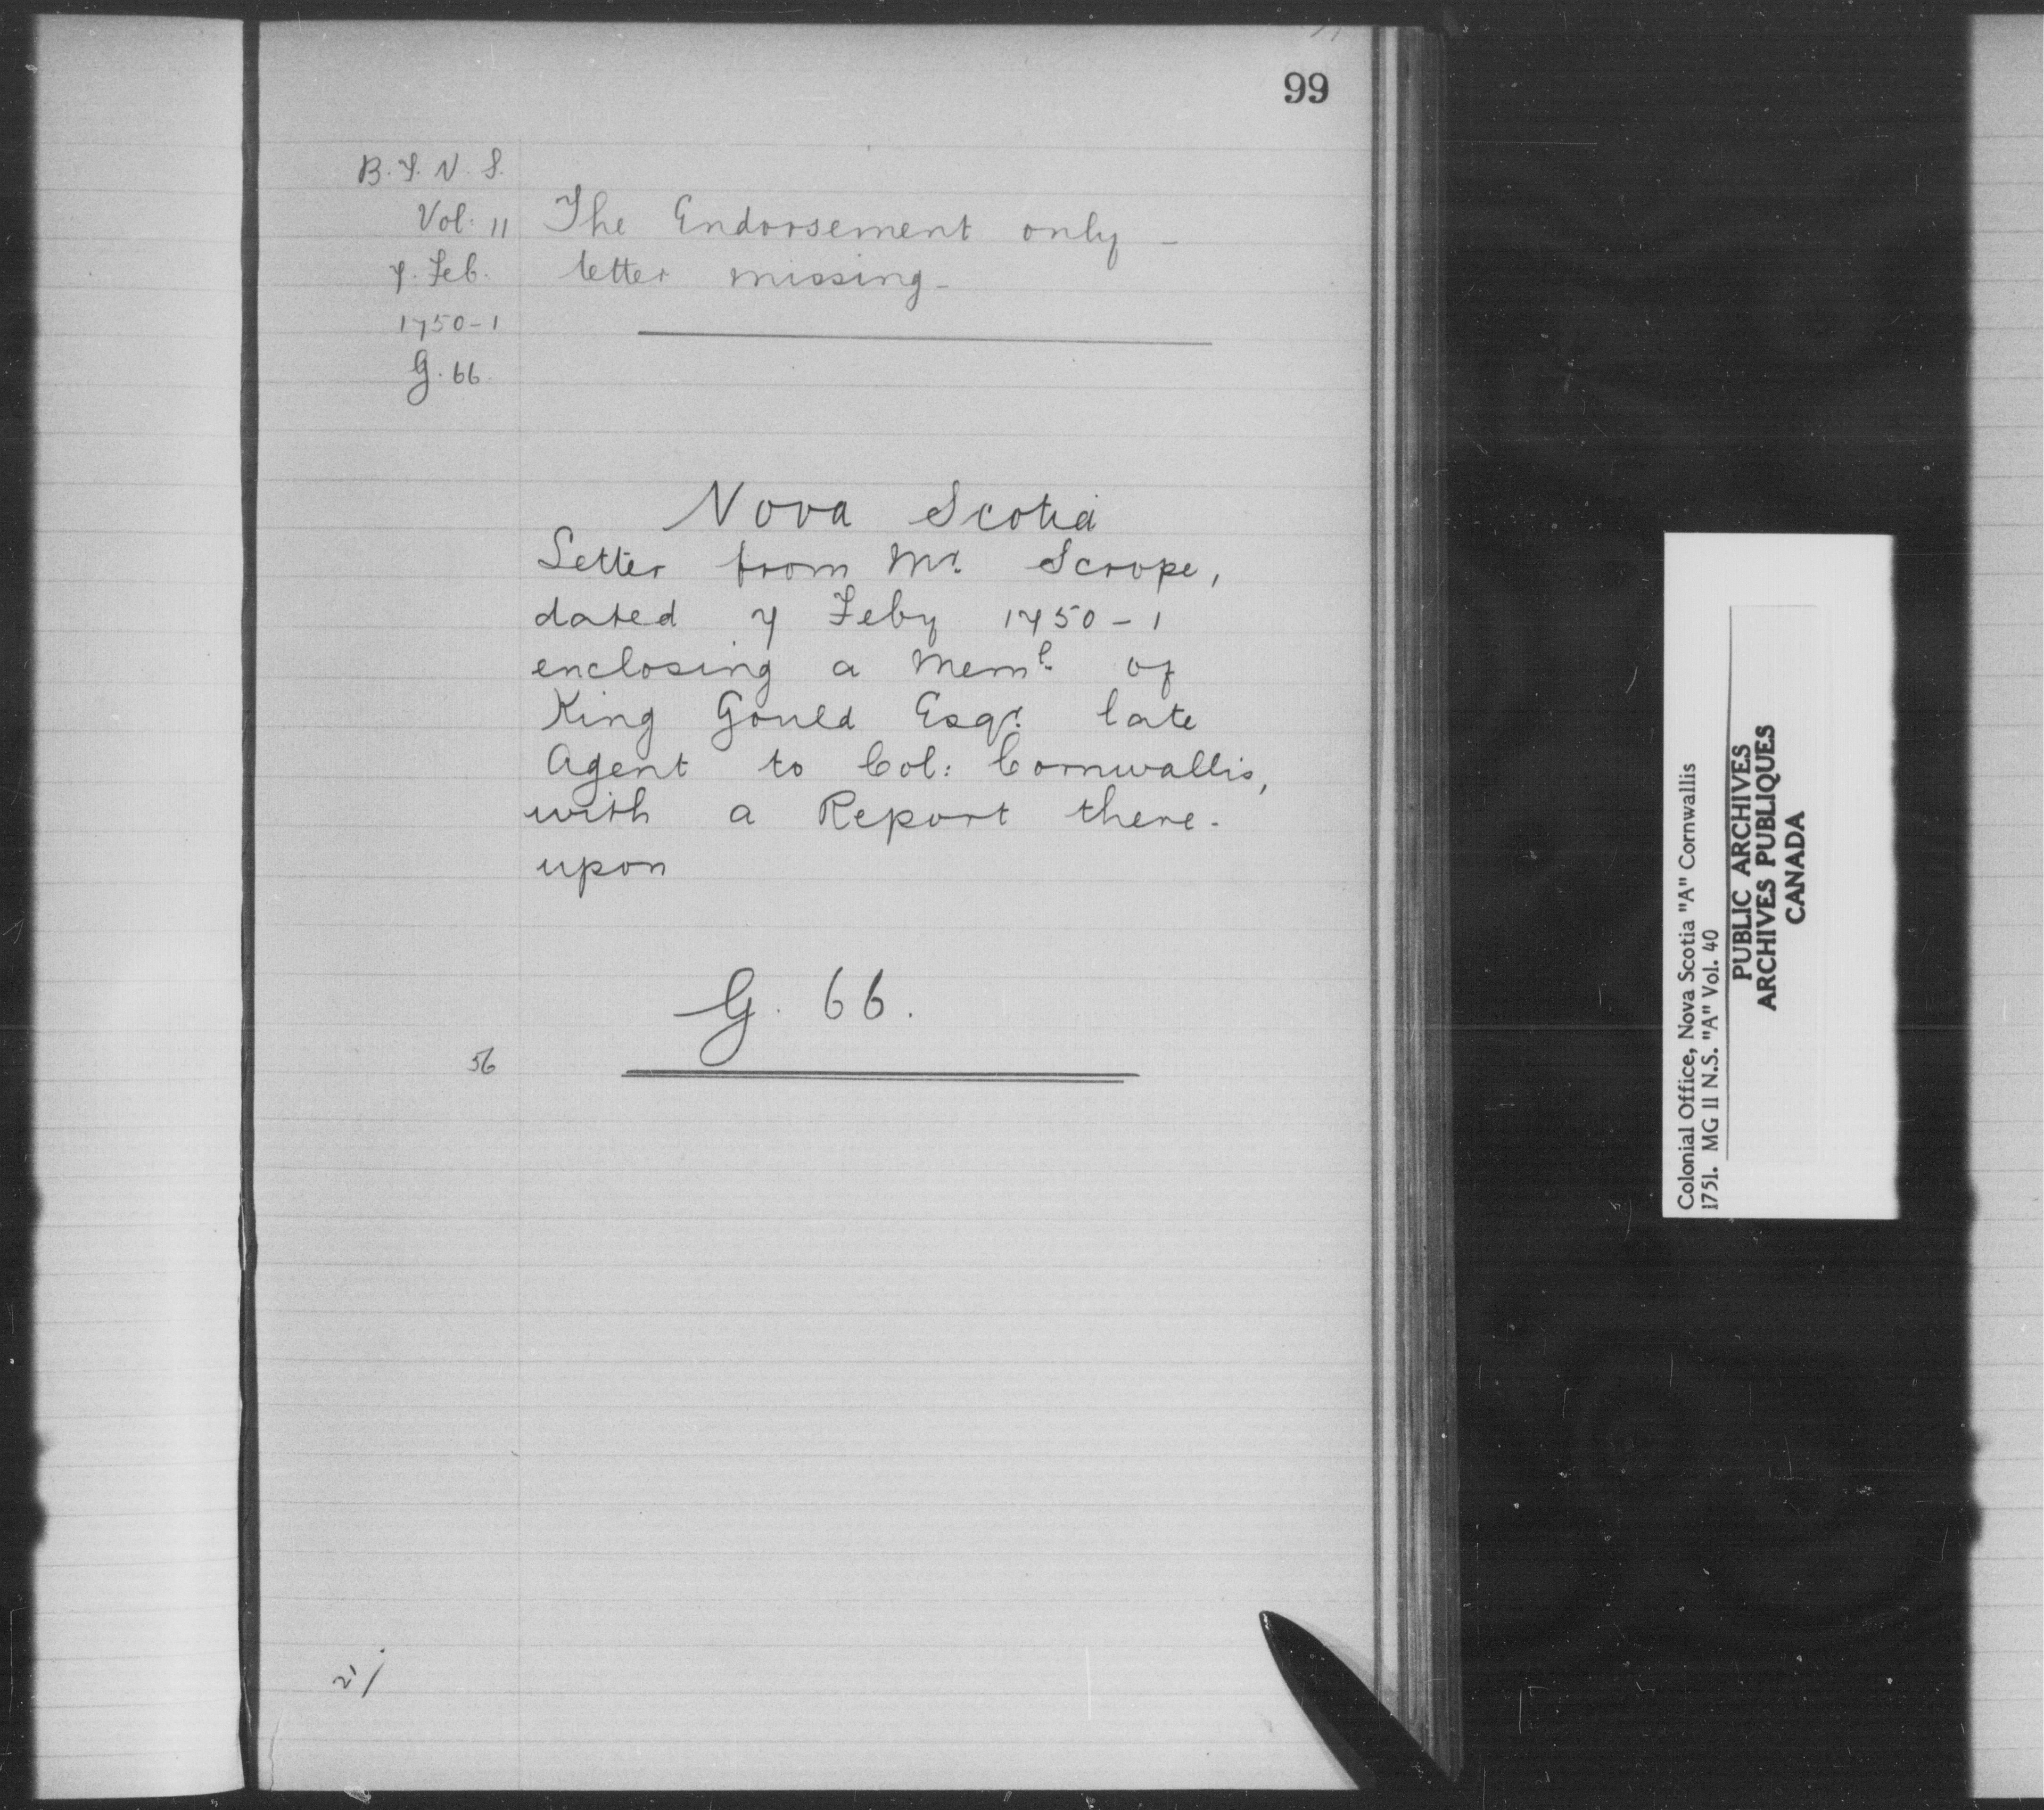 99
B. T. N. S.
Vol. 11
7. Feb.
1750-1
G. 66.
The Endorsement only -
letter missing -
Nova Scotia
Letter from Mr. Scrope,
dated 7 Feby 1750-1
enclosing a Meml. of
King Gould Esqr. late
Agent to Col: Cornwallis,
with a Report there-
upon
G. 66.
56
21/
Colonial Office, Nova Scotia "A" Cornwallis
1751. MG 11 N.S. "A" Vol. 40
PUBLIC ARCHIVES
ARCHIVES PUBLIQUES
CANADA